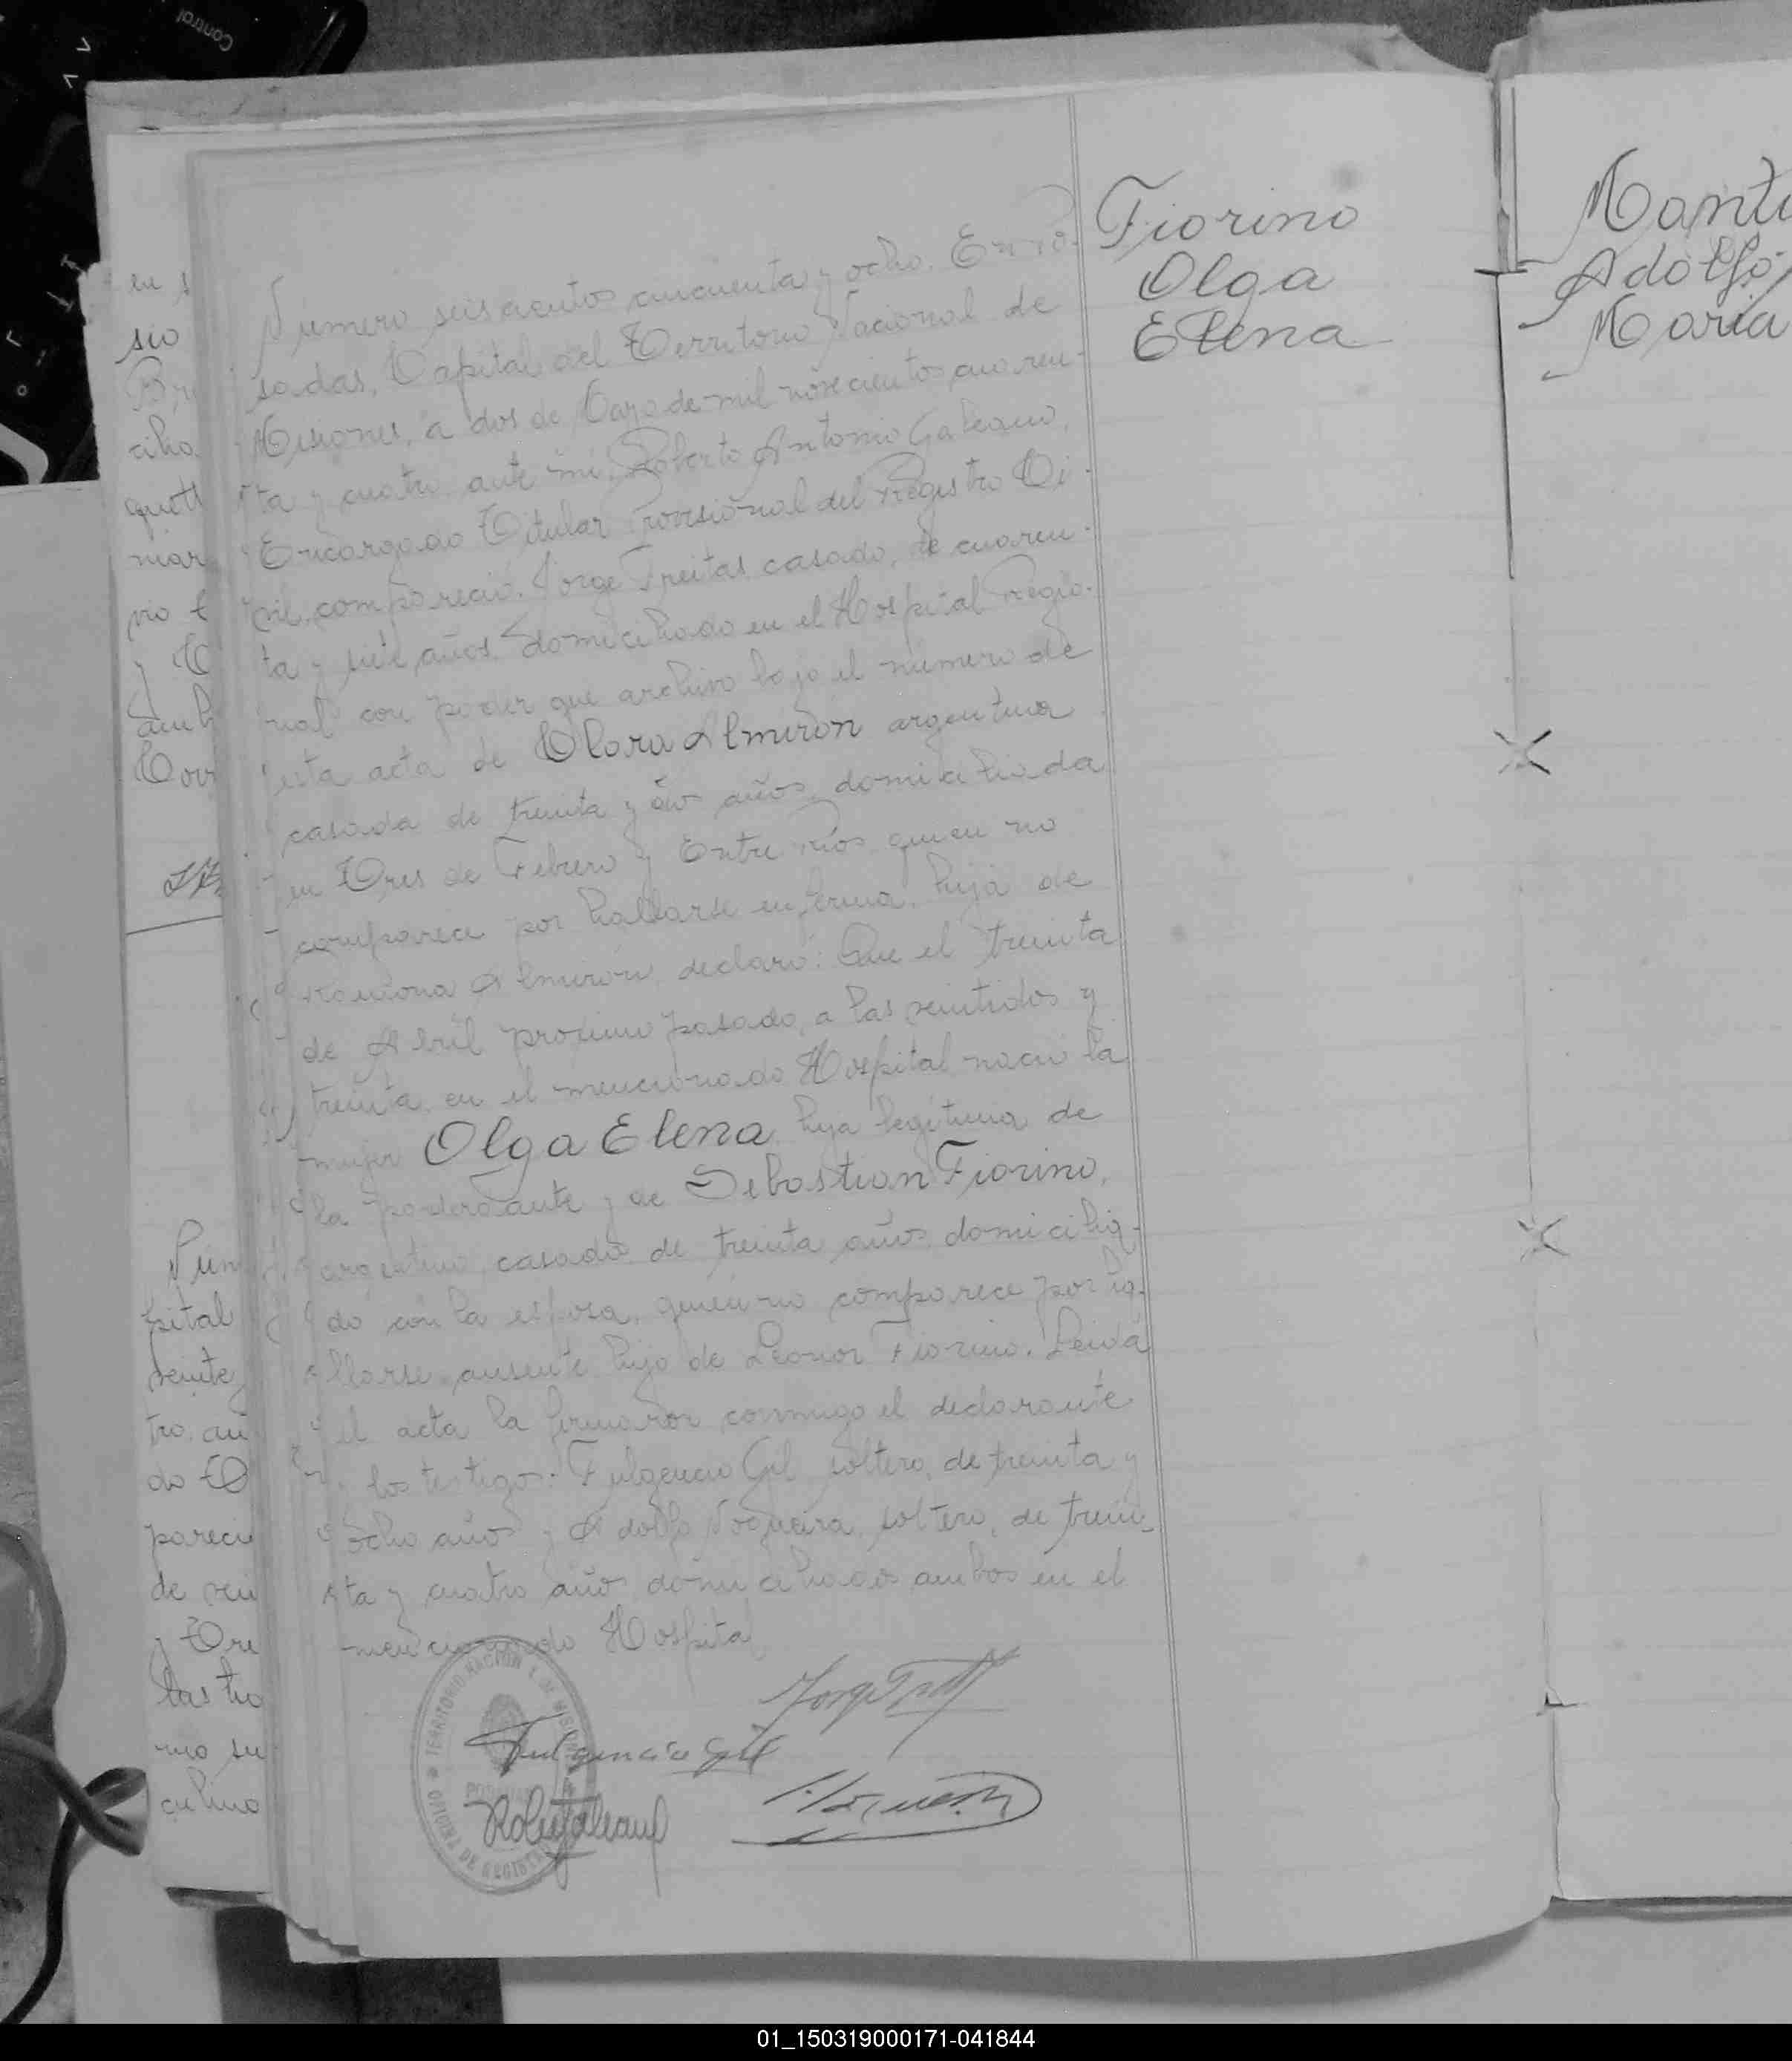 Control
Numero seiscientos cincuenta y ocho. En Po-
sadas, Capital del Territorio Nacional de
Misiones, a dos de Mayo de mil novecientos cuaren-
ta y cuatro, ante mí, Roberto Antonio Galeano,
Encargado Titular Provisional del Registro Ci-
vil, comparecio: Jorge Freitas, casado, de cuaren-
ta y siete años, domiciliado en el Hospital Regio-
nal con poder que archivo bajo el número de
esta acta de Clara Almiron argentina
casada de treinta y dos años, domiciliada
en Tres de Febrero y Entre Rios, quien no
comparece por hallarse enferma, hija de
Ramona Almirón, declaró: Que el treinta
de Abril proximo pasado, a las veintidos y
treinta, en el mencionado Hospital nació la
mujer Olga Elena, hija legitima de
la poderdante y de Sebastian Fiorino,
argentino, casado de treinta años, domicilia-
do con la esposa, quien no comparece por ha-
llarse ausente, hijo de Leonor Fiorino. Leida
el acta la firmaron conmigo el declarante
y los testigos: Fulgencio Gil, soltero, de treinta y
ocho años y Adolfo Nogueira, soltero, de trein-
ta y cuatro años domiciliados ambos en el
mencionado Hospital
Fulgencio Gil
TERRITORIO NACIONAL DE MISIONES
OFICINA DE REGISTRO
Fiorino
Olga
Elena
Adolfo
Maria
01_150319000171-041844